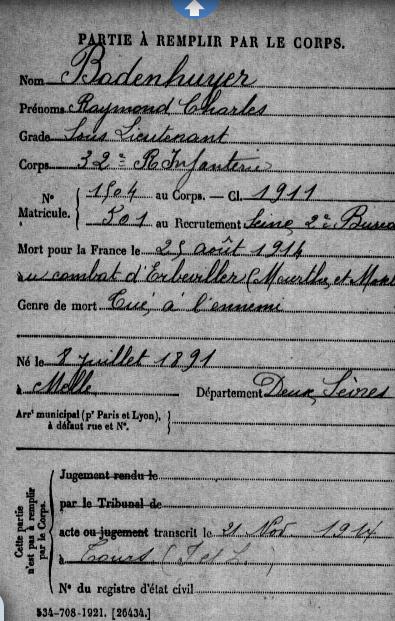 PARTIE À REMPLIR PAR LE CORPS.
Nom Badenhuyer
Prénoms Raymond Charles
Grade Sous Lieutenant
Corps 32e R Infanterie
No Matricule. 1504 au Corps. — Cl. 1911
501 au Recrutement Seine 2e Bureau
Mort pour la France le 25 août 1914
au combat d'Erbeviller (Meurthe et
Genre de mort Tué à l'ennemi
Né le 8 juillet 1891
à Melle Département Deux Sèvres
Arrt municipal (pr Paris et Lyon),
à défaut rue et No.
Cette partie n'est pas à remplir par le Corps.
Jugement rendu le
par le Tribunal de
acte ou jugement transcrit le 21 Nov 1914
à Tours (I et L.)
No du registre d'état civil
534-708-1921. [26434.]